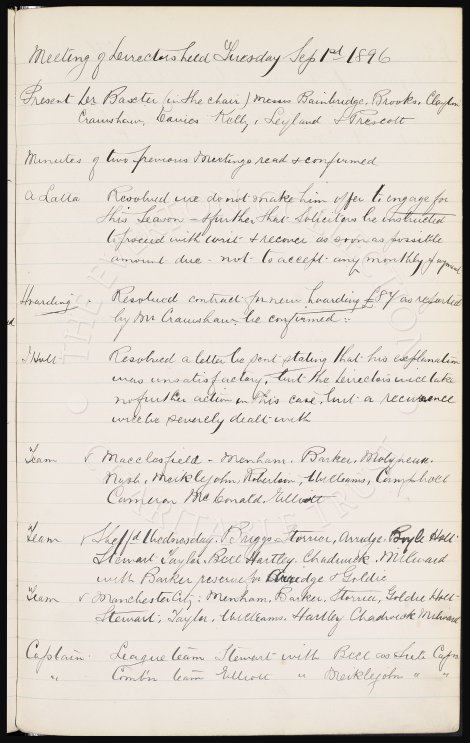 Meeting of Directors held Tuesday Sep 1st 1896
Present Dr Baxter (in the chair) Messrs Bainbridge, Brooks, Clayton
Crawshaw, Davies Kelly, Leyland & Prescott
Minutes of two previous Meetings read & confirmed
A Latta Resolved we do not make him offer to engage for
this Season - & further that Solicitors be instructed
to proceed with writ & recover as soon as possible
amount due - not to accept any monthly
Hoarding - Resolved contract for new hoarding £87 as reported
by Mr Crawshaw, be confirmed :-
J Holt - Resolved a letter be sent stating that his explanation
was unsatisfactory, but the Directors will take
no further action in this case, but a recurrence
will be severely dealt with
Team v Macclesfield - Menham. Barker, Molyneux.
Nash, Meiklejohn, Robertson, Williams, Campbell
Cameron McDonald, Elliott
Team v Sheff'd Wednesday, Briggs Storrier, Arridge. Boyle Holt
Stewart, Taylor, Bell Hartley, Chadwick, Milward
with Barker reserve for Arridge & Goldie
Team v Manchester City: Menham, Barker, Storrier, Goldie Holt
Stewart, Taylor, Williams, Hartley Chadwick Milward
Captain- League team Stewart with Bell as Sub Capn
" Combn team Elliott " Meiklejohn " "
THE